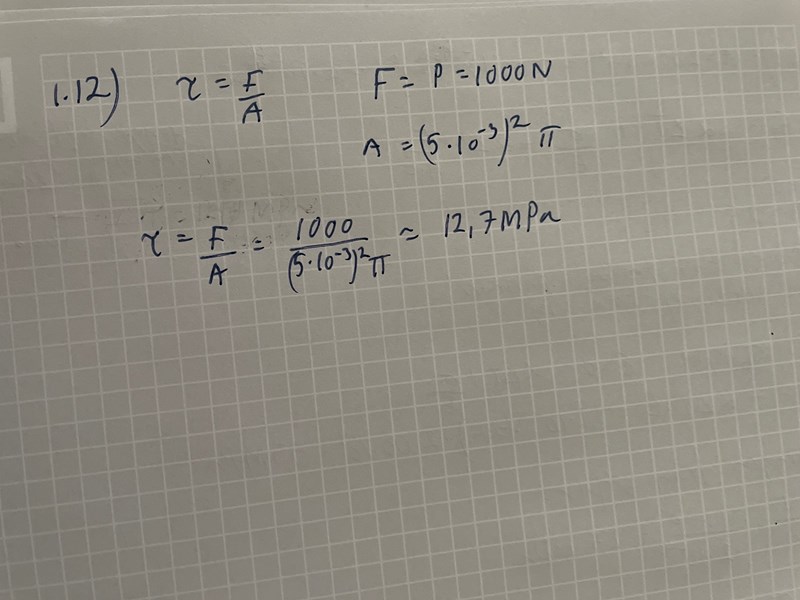 1.12) τ = F/A F = P = 1000N
A = (5·10⁻³)² π
τ = F/A = 1000/(5·10⁻³)²π ≈ 12,7MPa